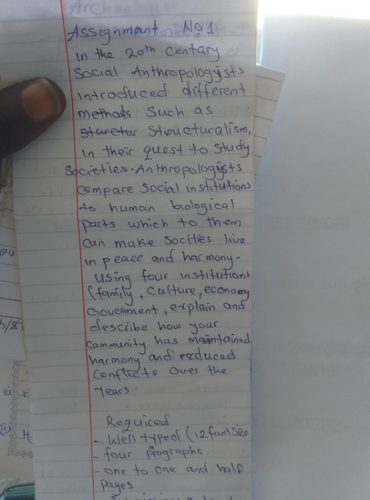 Assignment No 1
In the 20th Century
Social Anthropologysts
introduced different
methods such as
Structuralism,
in their quest to study
societies. Anthropologists
compare social institutions
to human biological
parts which to them
can make Socities live
in peace and harmony.
Using four institutions
(family, Culture, economy
Government, explain and
describe how your
Community has maintained
harmony and reduced
Conflicts over the
Years.
Required
- Well typed (12 font size
- four Pragraphs.
- one to one and half
pages